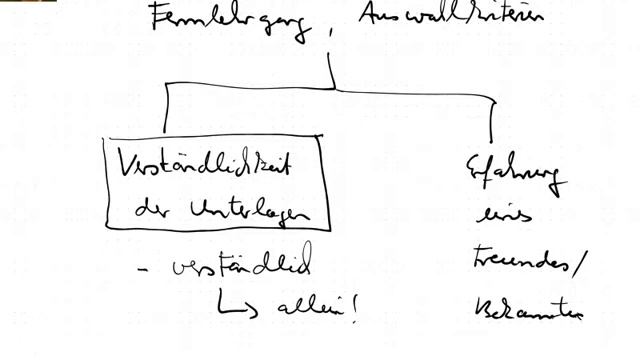 Fernlehrgang, Auswahlkriterien
Verständlichkeit
der Unterlagen
- verständlich
↳ allein!
Erfahrung
eines
Freundes/
Bekannten